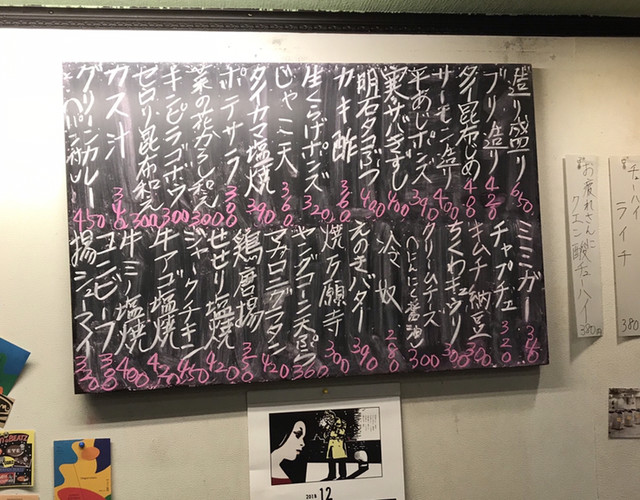 造り盛り 650
ブリ造り 480
タイ昆布じめ 480
サーモン造り 400
平あじポンズ 390
実ザバきずし 400
明石タコぶつ 420
カキ酢 360
生くらげポンズ 320
じゃこ天 360
タイカマ塩焼 390
ポテサラ 300
菜の花からし和え 300
キンピラゴボウ 300
セロリ昆布和え 300
カス汁 340
グリーンカレー 450
ミミガー 360
チャプチェ 320
キムチ納豆 390
ちくわキュウリ 300
クリームチーズ 300
冷奴 280
えのきバター 390
焼万願寺 300
ヤングコーン天ぷら 360
マカロニグラタン 420
鶏唐揚
せせり塩焼
ジャークチキン 450
牛アゴ塩焼 420
牛ミノ塩焼 400
コンビーフ
揚シュウマイ
お疲れさんに
クエン酸チューハイ 380円
チューハイ
ライチ 380
2018 12